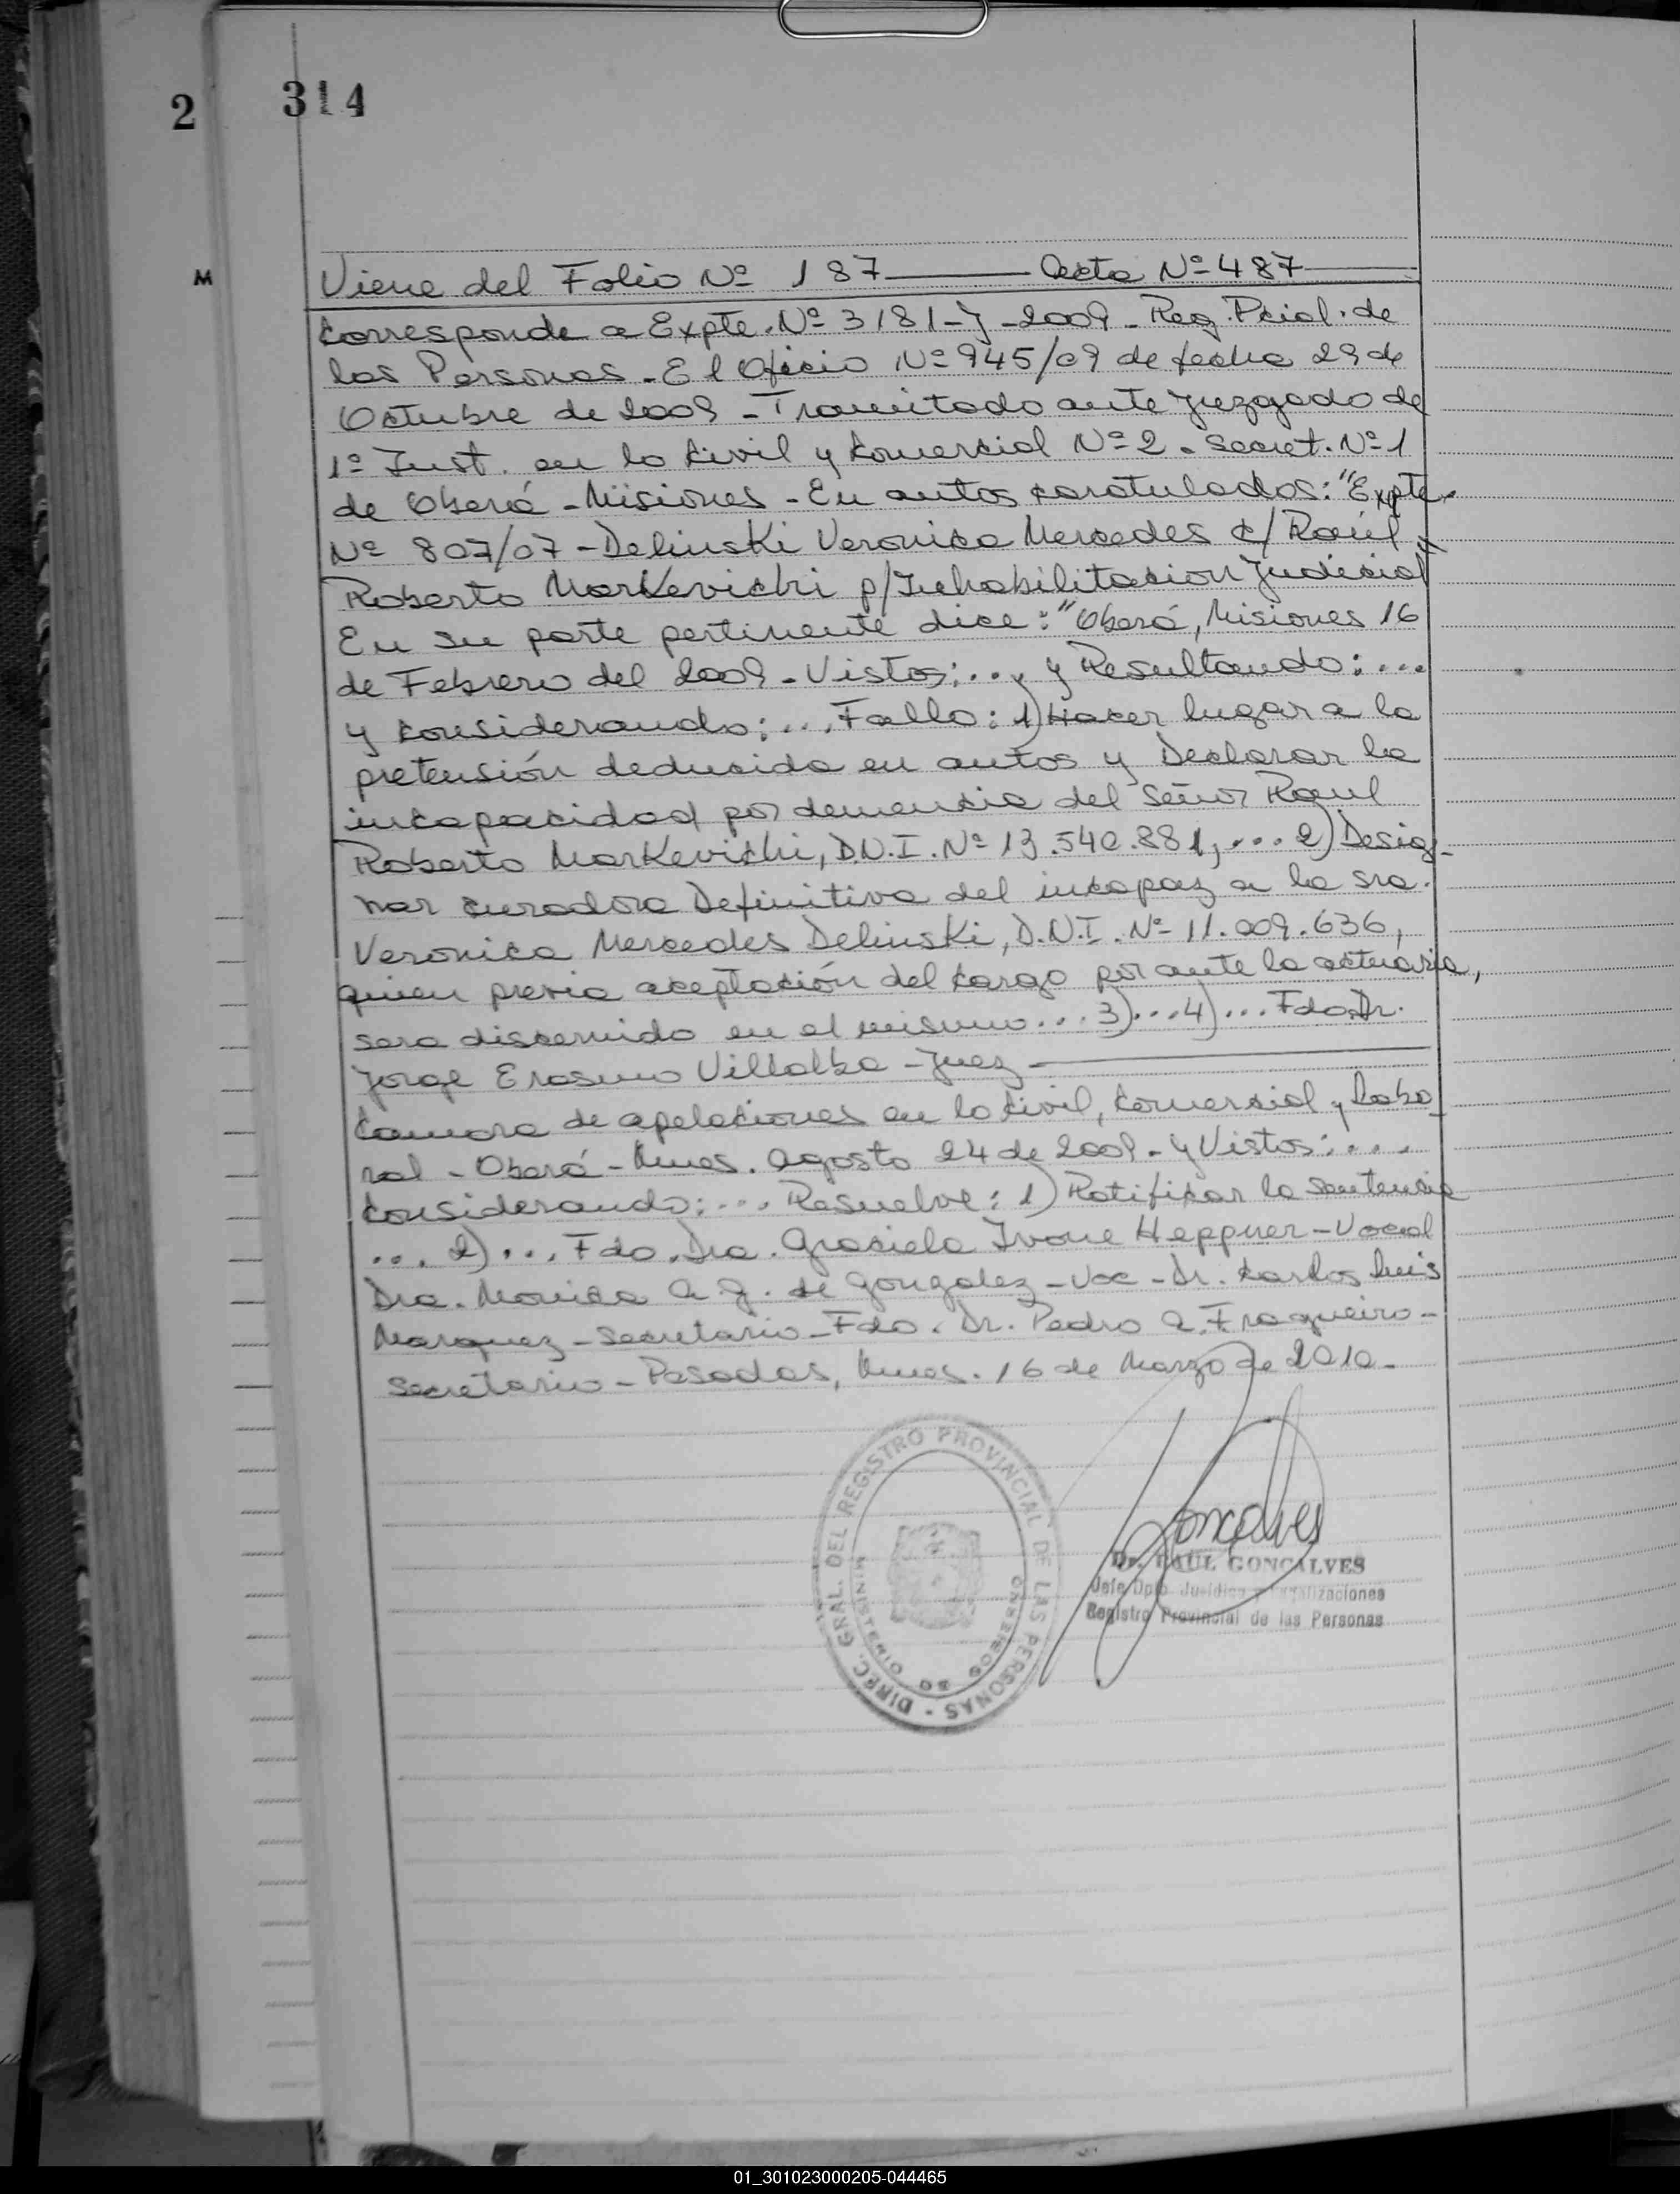 2 314
M
Viene del Folio Nº 187 ——— Acta Nº 487 ———
Corresponde a Expte. Nº 3181-J-2009 - Reg. Pcial. de
las Personas - El Oficio Nº 945/09 de fecha 29 de
Octubre de 2009 - Tramitado ante Juzgado de
1º Inst. en lo Civil y Comercial Nº 2 - Secret. Nº 1
de Oberá - Misiones - En autos caratulados: "Expte.
Nº 807/07 - Delinski Veronica Mercedes c/ Raúl
Roberto Markevichi p/Inhabilitacion Judicial"
En su parte pertinente dice: "Oberá, Misiones 16
de Febrero del 2009 - Vistos: ... y Resultando: ...
y considerando: ... Fallo: 1) Hacer lugar a la
pretensión deducida en autos y Declarar la
incapacidad por demencia del Señor Raul
Roberto Markevichi, D.N.I. Nº 13.540.881, ... 2) Desig-
nar curadora Definitiva del incapaz a la sra.
Veronica Mercedes Delinski, D.N.I. Nº 11.009.636,
quien previa aceptación del cargo por ante la actuaria,
sera discernido en el mismo ... 3) ... 4) ... Fdo. Dr.
Jorge Erasmo Villalba - Juez ———
Camara de apelaciones en lo Civil, Comercial y Labo-
ral - Oberá - Mnes. Agosto 24 de 2009 - y Vistos: ....
Considerando: ... Resuelve: 1) Ratificar la sentencia
... 2) ... Fdo. Dra. Graciela Ivone Heppner - Vocal
Dra. Monica A. G. de Gonzalez - Voc - Dr. Carlos Luis
Marquez - Secretario - Fdo. Dr. Pedro A. Fragueiro -
Secretario - Posadas, Mnes. 16 de Marzo de 2010 -
DIREC. GRAL. DEL REGISTRO PROVINCIAL DE LAS PERSONAS -
MINISTERIO DE GOBIERNO
Goncalves
Dr. RAUL GONCALVES
Jefe Dpto. Jurídico y Legalizaciones
Registro Provincial de las Personas
01_301023000205-044465